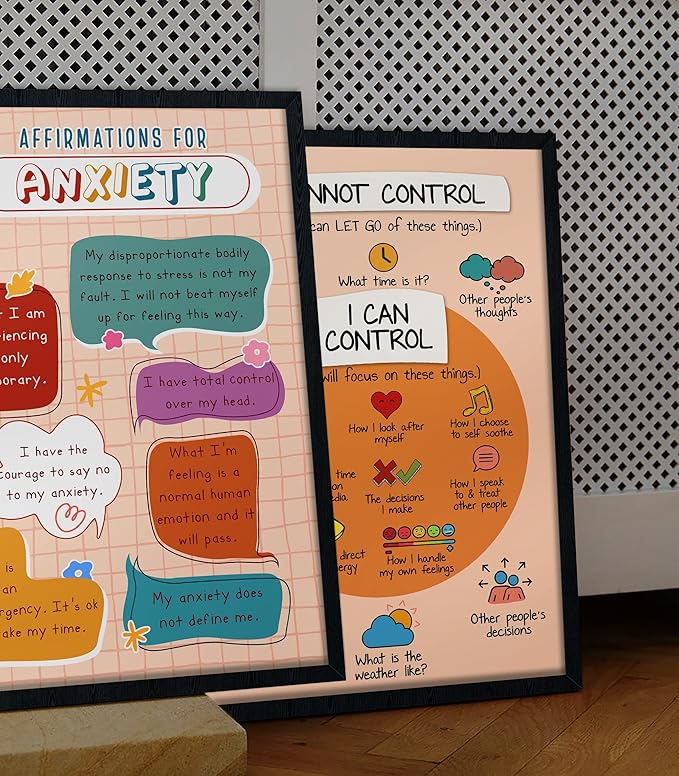 AFFIRMATIONS FOR
ANXIETY
My disproportionate bodily
response to stress is not my
fault. I will not beat myself
up for feeling this way.
I am
only
I have total control
over my head.
I have the
courage to say no
to my anxiety.
What I'm
feeling is a
normal human
emotion and it
will pass.
is
an
It's ok
my time.
My anxiety does
not define me.
CONTROL
can LET GO of these things.)
What time is it?
Other people's
thoughts
I CAN
CONTROL
will focus on these things.)
How I look after
myself
How I choose
to self soothe
time
on
The decisions
I make
How I speak
to & treat
other people
direct
How I handle
my own feelings
What is the
weather like?
Other people's
decisions